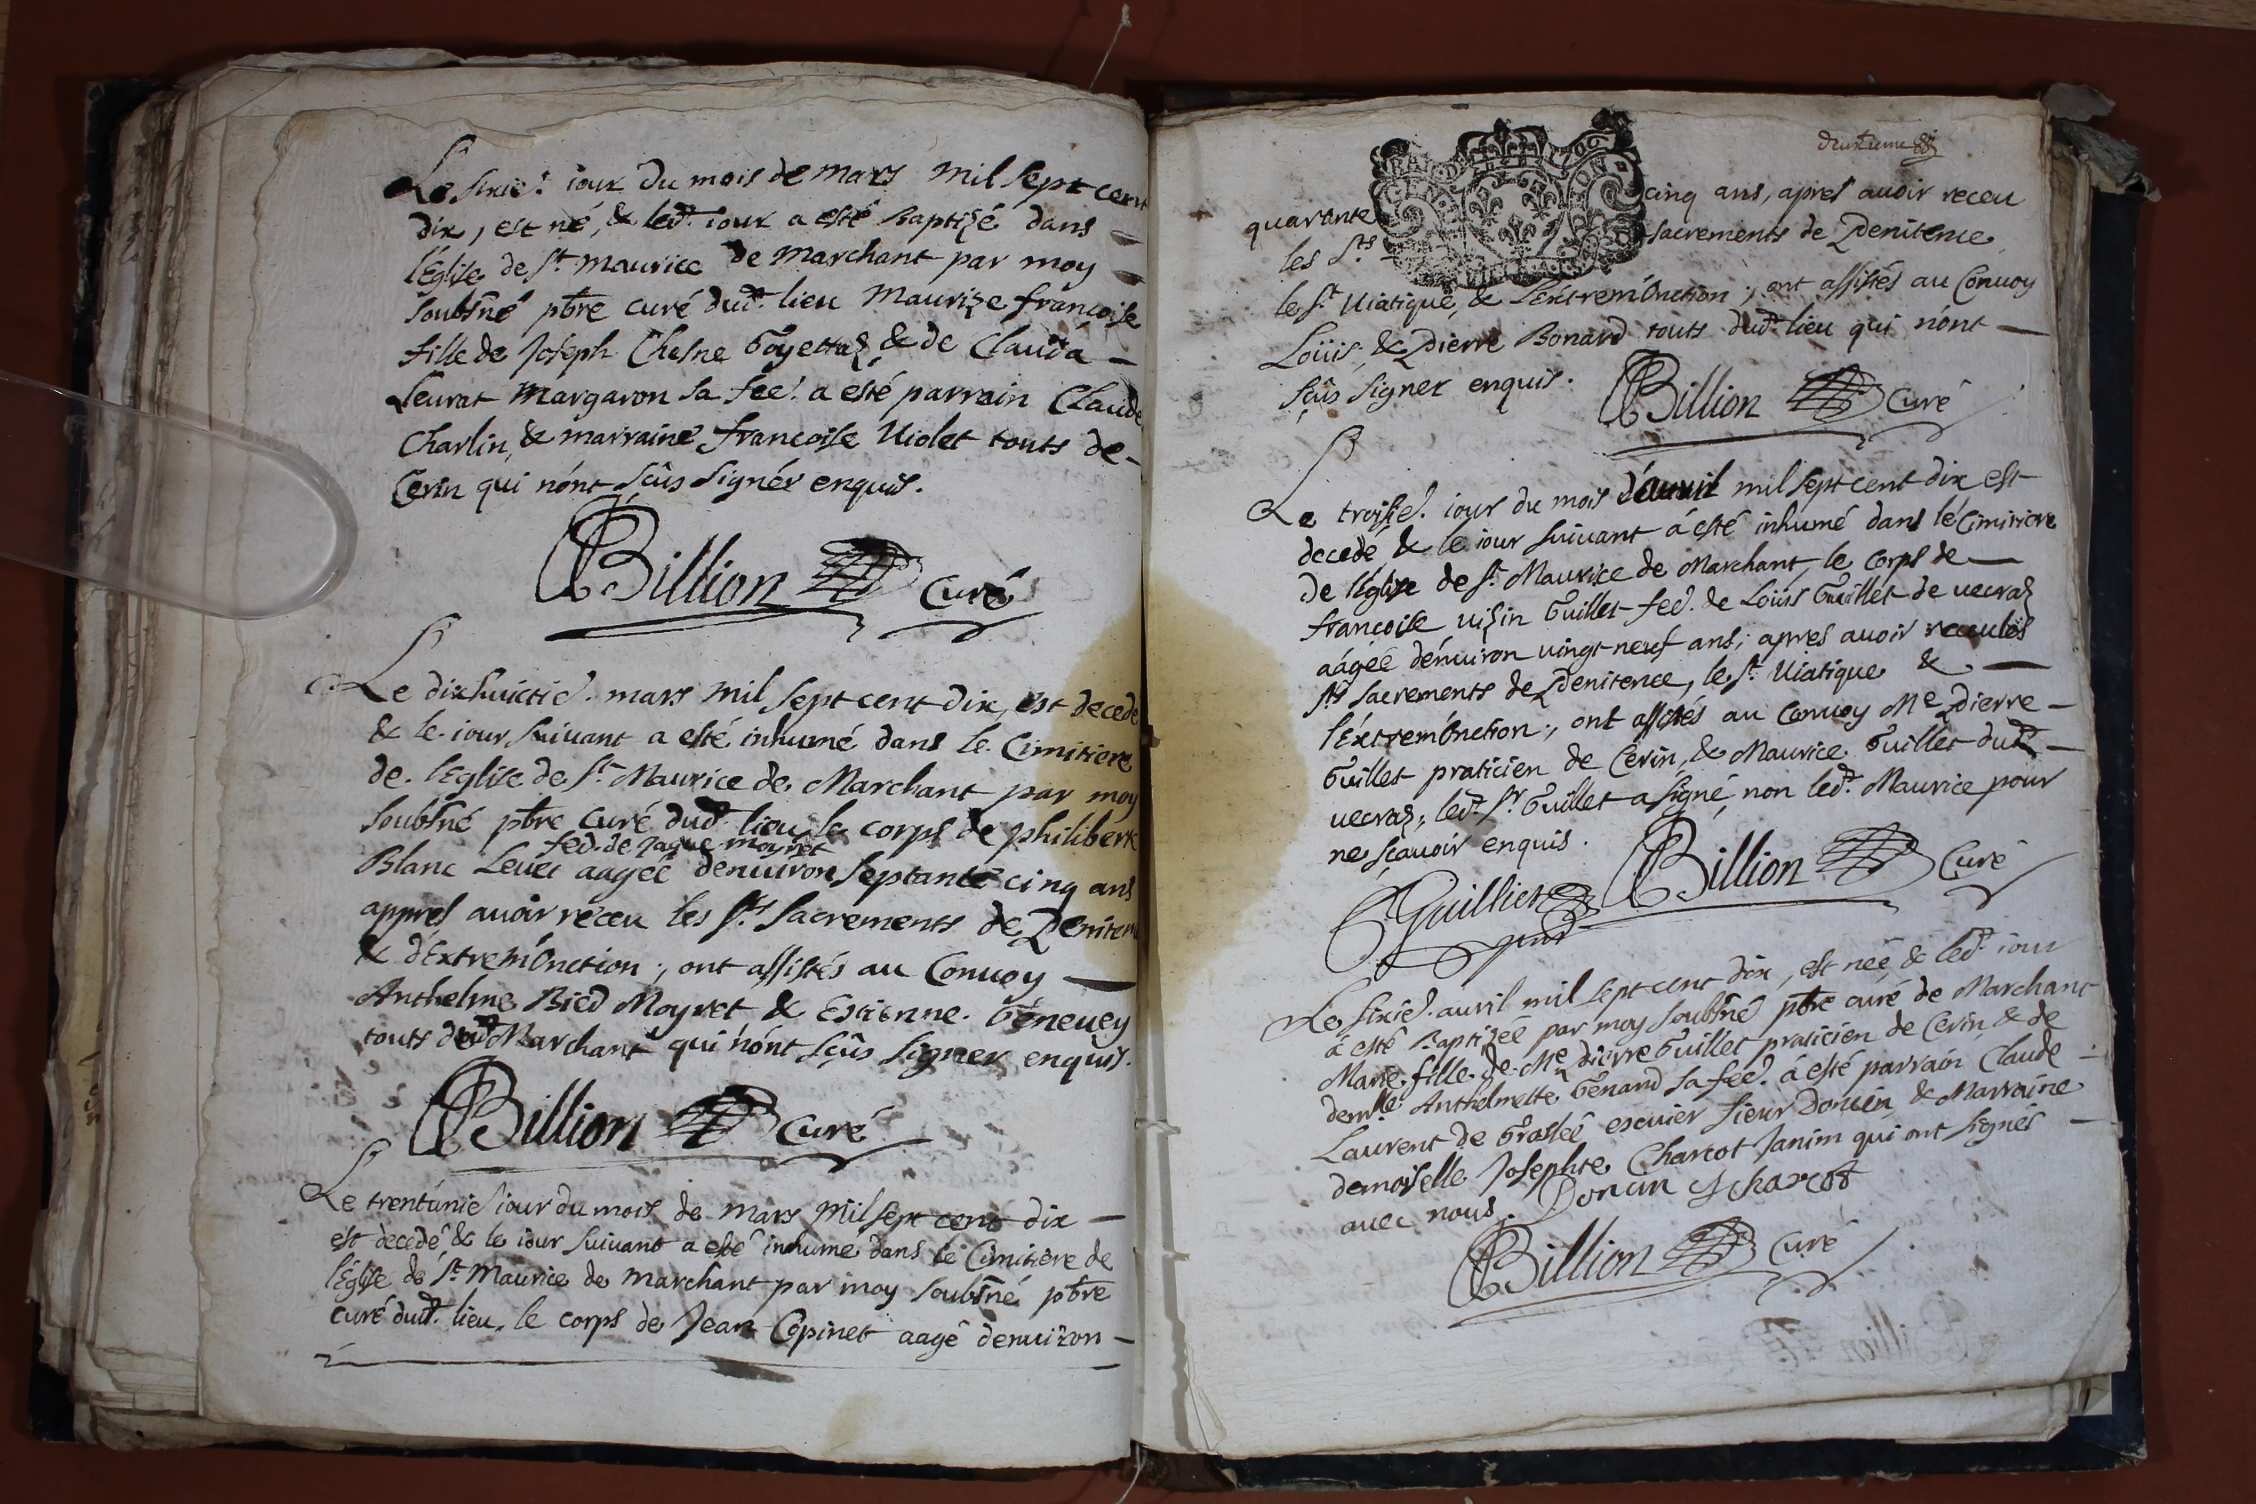 Le sixie. iour du mois de mars mil sept cent
dix, est né, & led. iour a esté Baptizé dans
l'Eglise de St. Maurice de Marchant par moy
soubsné pbre curé dud. lieu Maurize francoise
fille de Joseph Chesne Goyettaz & de Clauda
Leurat Margaron sa fee. a esté parrain Claude
Charlin, & marraine francoise Uiolet touts de
Cerin qui n'ont sçûs signér enquis.
Billion Curé
Le dixhuictie. mars mil sept cent dix, est decede
& le iour suivant a esté inhumé dans le Cimitiere
de l'Eglise de St. Maurice de Marchant par moy
soubsné pbre curé dud. lieu le corps de philiberte
fee. de Jaque moyret
Blanc Leuet aagée denuiron septante cinq ans
appres auoir receu les Sts. Sacrements de Peniten
& d'Extrem'Onction; ont assistés au Conuoy
Anthelme Bied Moyret & Estienne Geneuey
touts dud. Marchant qui n'ont sçûs signer enquis.
Billion Curé
Le trent'unie iour du mois de mars mil sept cent dix
est decedé & le iour suivant a esté inhumé dans le Cimitiere de
l'Eglise de St. Maurice de Marchant par moy soubsné pbre
curé dud. lieu, le corps de Jean Copinet aagé denuiron
deuxieme
quarante cinq ans, apres auoir receu
les Sts. sacrements de Penitence
le St. Uiatique, & l'Extrem'Onction; ont assistés au Conuoy
Loüis & Pierre Bonard touts dud. lieu qui n'ont
sçûs signer enquis.
Billion Curé
Le troisie. iour du mois d'auril mil sept cent dix est
decedé & le iour suiuant a esté inhumé dans le Cimitiere
de l'Eglise de St. Maurice de Marchant, le corps de
francoise uizin Guillet fee. de Loüis Guillet de uecraz
aagée d'enuiron uingt-neuf ans; apres auoir receu les
Sts sacrements de Penitence, le St. Uiatique &
l'Extrem'Onction; ont assistés au Conuoy Me Pierre
Guillet praticien de Cerin, & Maurice Guillet dud.
uecraz, led. Sr. Guillet a signé, non led. Maurice pour
ne sçauoir enquis.
Guillier Billion Curé
Le sixie. auril mil sept cent dix, est née, & led. iour
a esté Baptizée par moy soubsné pbre curé de Marchant
Marie fille de Me Pierre Guillet praticien de Cerin & de
demlle Anthelmette Genand sa fee. a esté parrain Claude
Laurent de Grassée escuier sieur Doncin & Marraine
demoiselle Josephte Charcot Janim qui ont signés
auec nous. Doncin J charcot
Billion Curé